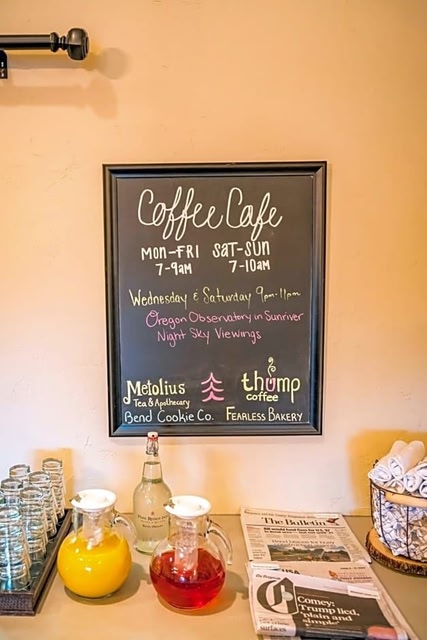 Coffee Cafe
MON-FRI SAT-SUN
7-9am 7-10am
Wednesday & Saturday 9pm-11pm
Oregon Observatory in Sunriver
Night Sky Viewings
Metolius
Tea & Apothecary
thump
coffee
Bend Cookie Co. FEARLESS BAKERY
The Bulletin
USA
Comey:
Trump lied,
'plain and
simple'